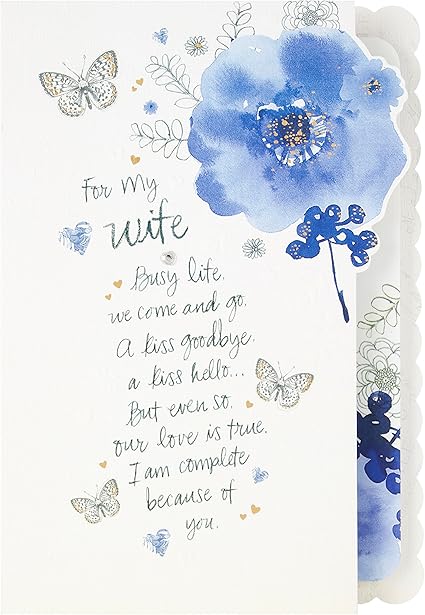 For My
Wife
Busy life,
we come and go.
A kiss goodbye,
a kiss hello...
But even so,
our love is true.
I am complete
because of
you.